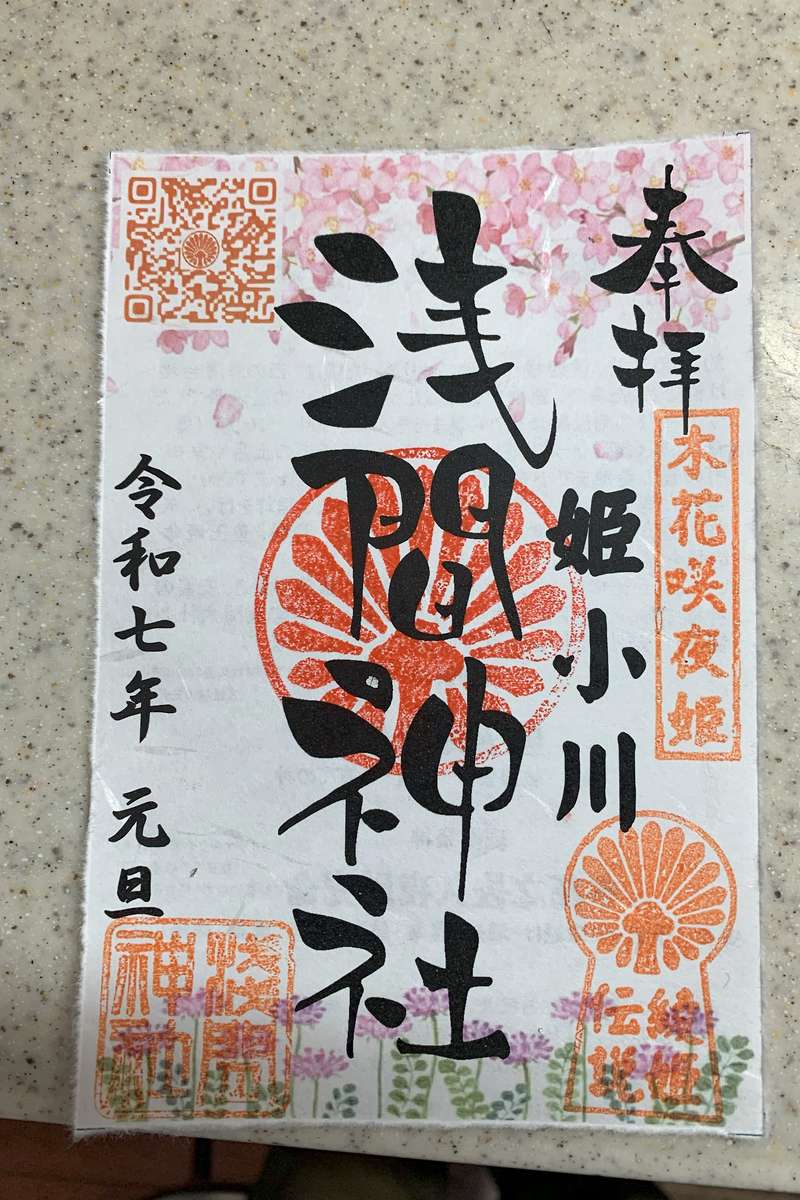 奉拝
木花咲夜姫
姫小川
浅間神社
綾姫
伝説
令和七年 元旦
浅間
神社